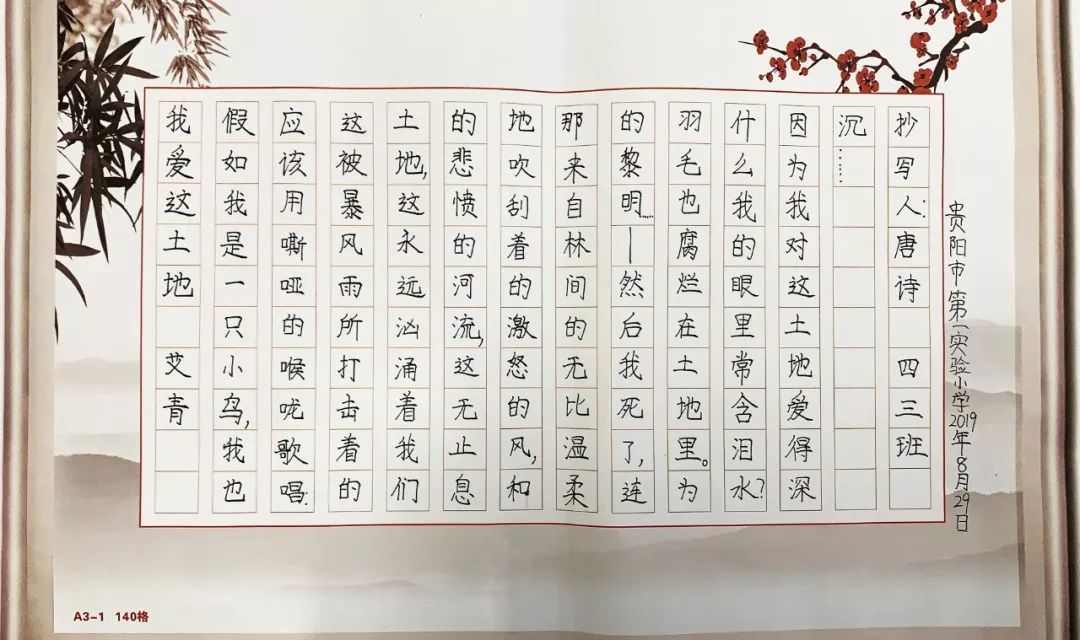 我爱这土地 艾青
假如我是一只小鸟,我也
应该用嘶哑的喉咙歌唱:
这被暴风雨所打击着的
土地,这永远汹涌着我们
的悲愤的河流,这无止息
地吹刮着的激怒的风,和
那来自林间的无比温柔
的黎明……—然后我死了,连
羽毛也腐烂在土地里。为
什么我的眼里常含泪水?
因为我对这土地爱得深
沉……
抄写人:唐诗 四三班
贵阳市第一实验小学2019年8月29日
A3-1 140格